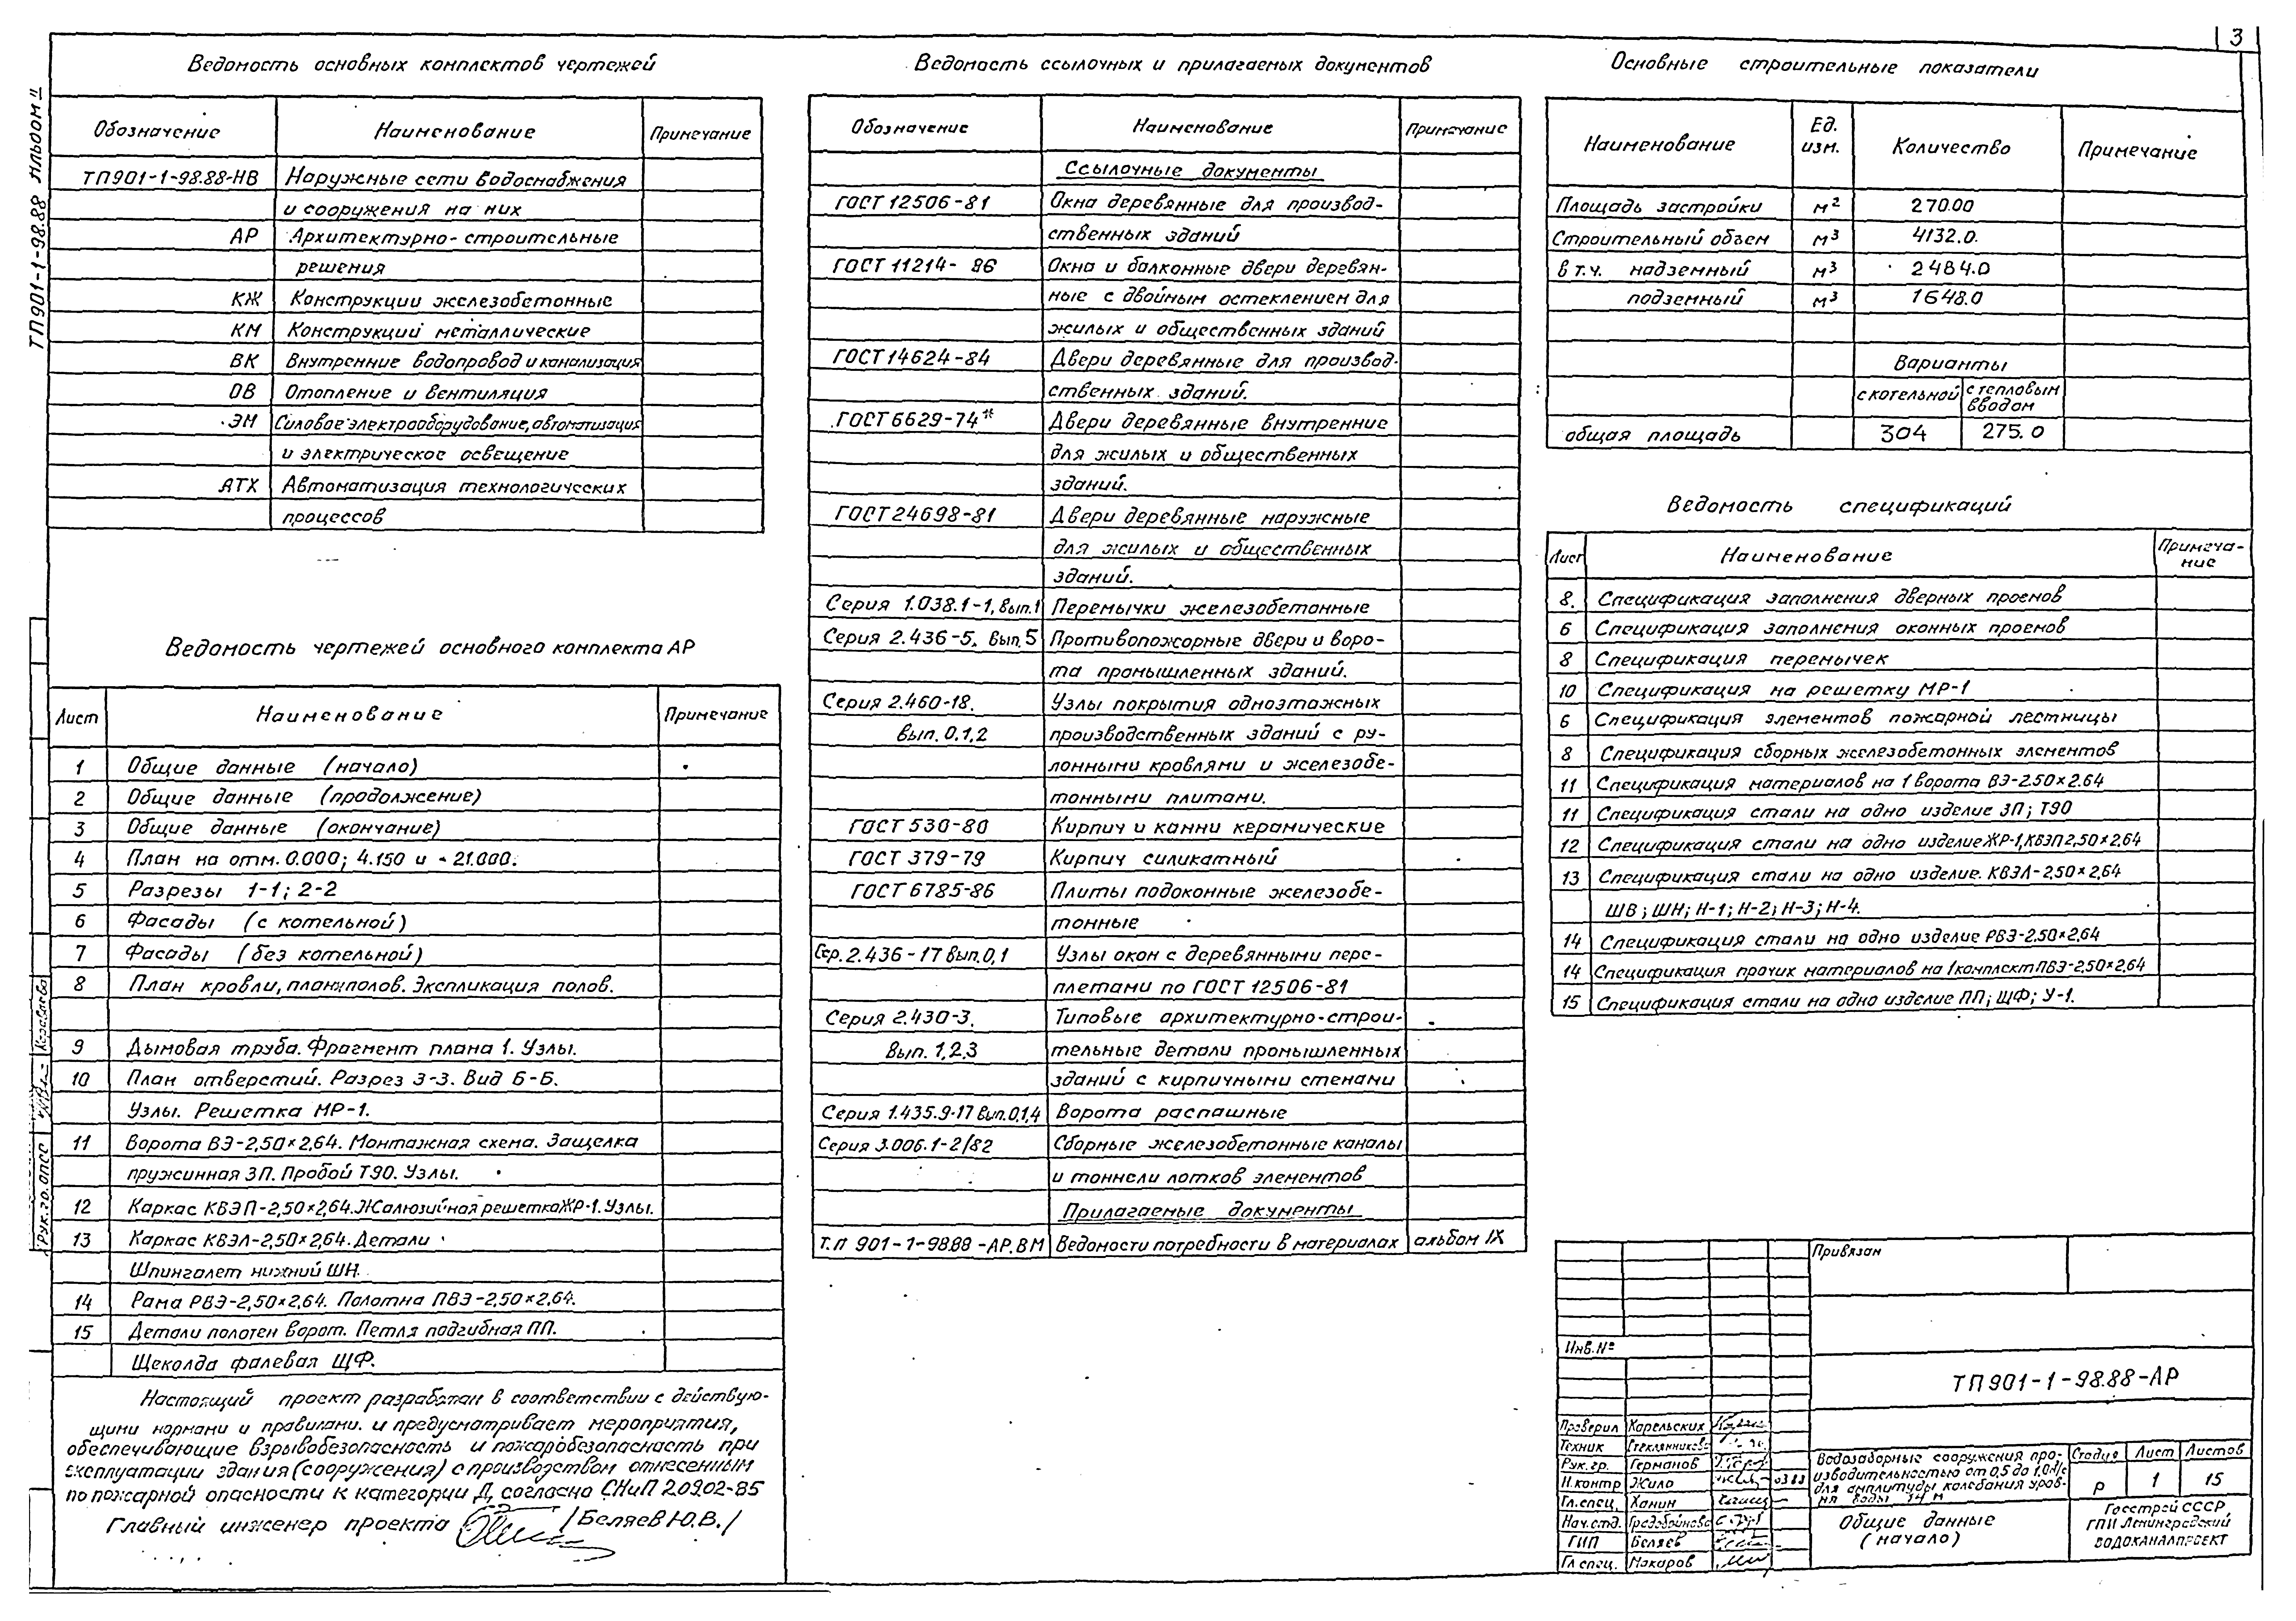 3
ТП901-1-98.88 Альбом II
Ведомость основных комплектов чертежей
Обозначение Наименование Примечание
ТП901-1-98.88-НВ Наружные сети водоснабжения
и сооружения на них
АР Архитектурно-строительные
решения
КЖ Конструкции железобетонные
КМ Конструкции металлические
ВК Внутренние водопровод и канализация
ОВ Отопление и вентиляция
ЭМ Силовое электрооборудование, автоматизация
и электрическое освещение
АТХ Автоматизация технологических
процессов
Ведомость чертежей основного комплекта АР
Лист Наименование Примечание
1 Общие данные (начало)
2 Общие данные (продолжение)
3 Общие данные (окончание)
4 План на отм. 0.000; 4.150 и -21.000.
5 Разрезы 1-1; 2-2
6 Фасады (с котельной)
7 Фасады (без котельной)
8 План кровли, план полов. Экспликация полов.
9 Дымовая труба. Фрагмент плана 1. Узлы.
10 План отверстий. Разрез 3-3. Вид Б-Б.
Узлы. Решетка МР-1.
11 Ворота ВЭ-2,50×2,64. Монтажная схема. Защелка
пружинная ЗП. Пробой Т90. Узлы.
12 Каркас КВЭП-2,50×2,64. Жалюзийная решетка ЖР-1. Узлы.
13 Каркас КВЭЛ-2,50×2,64. Детали
Шпингалет нижний ШН.
14 Рама РВЭ-2,50×2,64. Полотна ПВЭ-2,50×2,64.
15 Детали полотен ворот. Петля подгибная ПП.
Щеколда фалевая ЩФ.
Настоящий проект разработан в соответствии с действую-
щими нормами и правилами. и предусматривает мероприятия,
обеспечивающие взрывобезопасность и пожаробезопасность при
эксплуатации здания (сооружения) с производством отнесенным
по пожарной опасности к категории Д, согласно СНиП 2.09.02-85
Главный инженер проекта /Беляев Ю.В./
Рук. гр. ОПСС
Ведомость ссылочных и прилагаемых документов
Обозначение Наименование Примечание
Ссылочные документы
ГОСТ 12506-81 Окна деревянные для производ-
ственных зданий
ГОСТ 11214-86 Окна и балконные двери деревян-
ные с двойным остеклением для
жилых и общественных зданий
ГОСТ 14624-84 Двери деревянные для производ-
ственных зданий.
ГОСТ 6629-74* Двери деревянные внутренние
для жилых и общественных
зданий.
ГОСТ 24698-81 Двери деревянные наружные
для жилых и общественных
зданий.
Серия 1.038.1-1, вып.1 Перемычки железобетонные
Серия 2.436-5. Вып.5 Противопожарные двери и воро-
та промышленных зданий.
Серия 2.460-18. Узлы покрытия одноэтажных
вып. 0.1,2 производственных зданий с ру-
лонными кровлями и железобе-
тонными плитами.
ГОСТ 530-80 Кирпич и камни керамические
ГОСТ 379-79 Кирпич силикатный
ГОСТ 6785-86 Плиты подоконные железобе-
тонные
Сер. 2.436-17 Вып.0,1 Узлы окон с деревянными пере-
плетами по ГОСТ 12506-81
Серия 2.430-3. Типовые архитектурно-строи-
Вып. 1,2.3 тельные детали промышленных
зданий с кирпичными стенами
Серия 1.435.9-17 Вып.0,1,4 Ворота распашные
Серия 3.006.1-2/82 Сборные железобетонные каналы
и тоннели лотков элементов
Прилагаемые документы
Т.П 901-1-98.88-АР.ВМ Ведомости потребности в материалах альбом IX
Основные строительные показатели
Наименование Ед. изм. Количество Примечание
Площадь застройки м² 270.00
Строительный объем м³ 4132.0.
в т.ч. надземный м³ 2484.0
подземный м³ 1648.0
Варианты
с котельной с тепловым
вводом
общая площадь 304 275.0
Ведомость спецификаций
Лист Наименование Примеча-
ние
8. Спецификация заполнения дверных проемов
6 Спецификация заполнения оконных проемов
8 Спецификация перемычек
10 Спецификация на решетку МР-1
6 Спецификация элементов пожарной лестницы
8 Спецификация сборных железобетонных элементов
11 Спецификация материалов на 1 ворота ВЭ-2.50×2.64
11 Спецификация стали на одно изделие ЗП; Т90
12 Спецификация стали на одно изделие ЖР-1, КВЭП2,50×2,64
13 Спецификация стали на одно изделие. КВЭЛ-2,50×2,64
ШВ; ШН; Н-1; Н-2; Н-3; Н-4.
14 Спецификация стали на одно изделие РВЭ-2,50×2,64
14 Спецификация прочих материалов на 1 комплект ПВЭ-2,50×2,64
15 Спецификация стали на одно изделие ПП; ЩФ; У-1.
Привязан
Инв. №
ТП901-1-98.88-АР
Проверил Карельских
Техник Стеклянникова
Рук. гр. Германов
Н.контр Жила 03.88
Гл.спец. Ханин
Нач.отд.
ГИП Беляев
Гл спец. Макаров
Водозаборные сооружения про-
изводительностью от 0,5 до 1,0
для амплитуды колебания уров-
ня воды 14 м
Стадия Лист Листов
Р 1 15
Общие данные
(начало)
Госстрой СССР
ГПИ Ленинградский
ВОДОКАНАЛПРОЕКТ